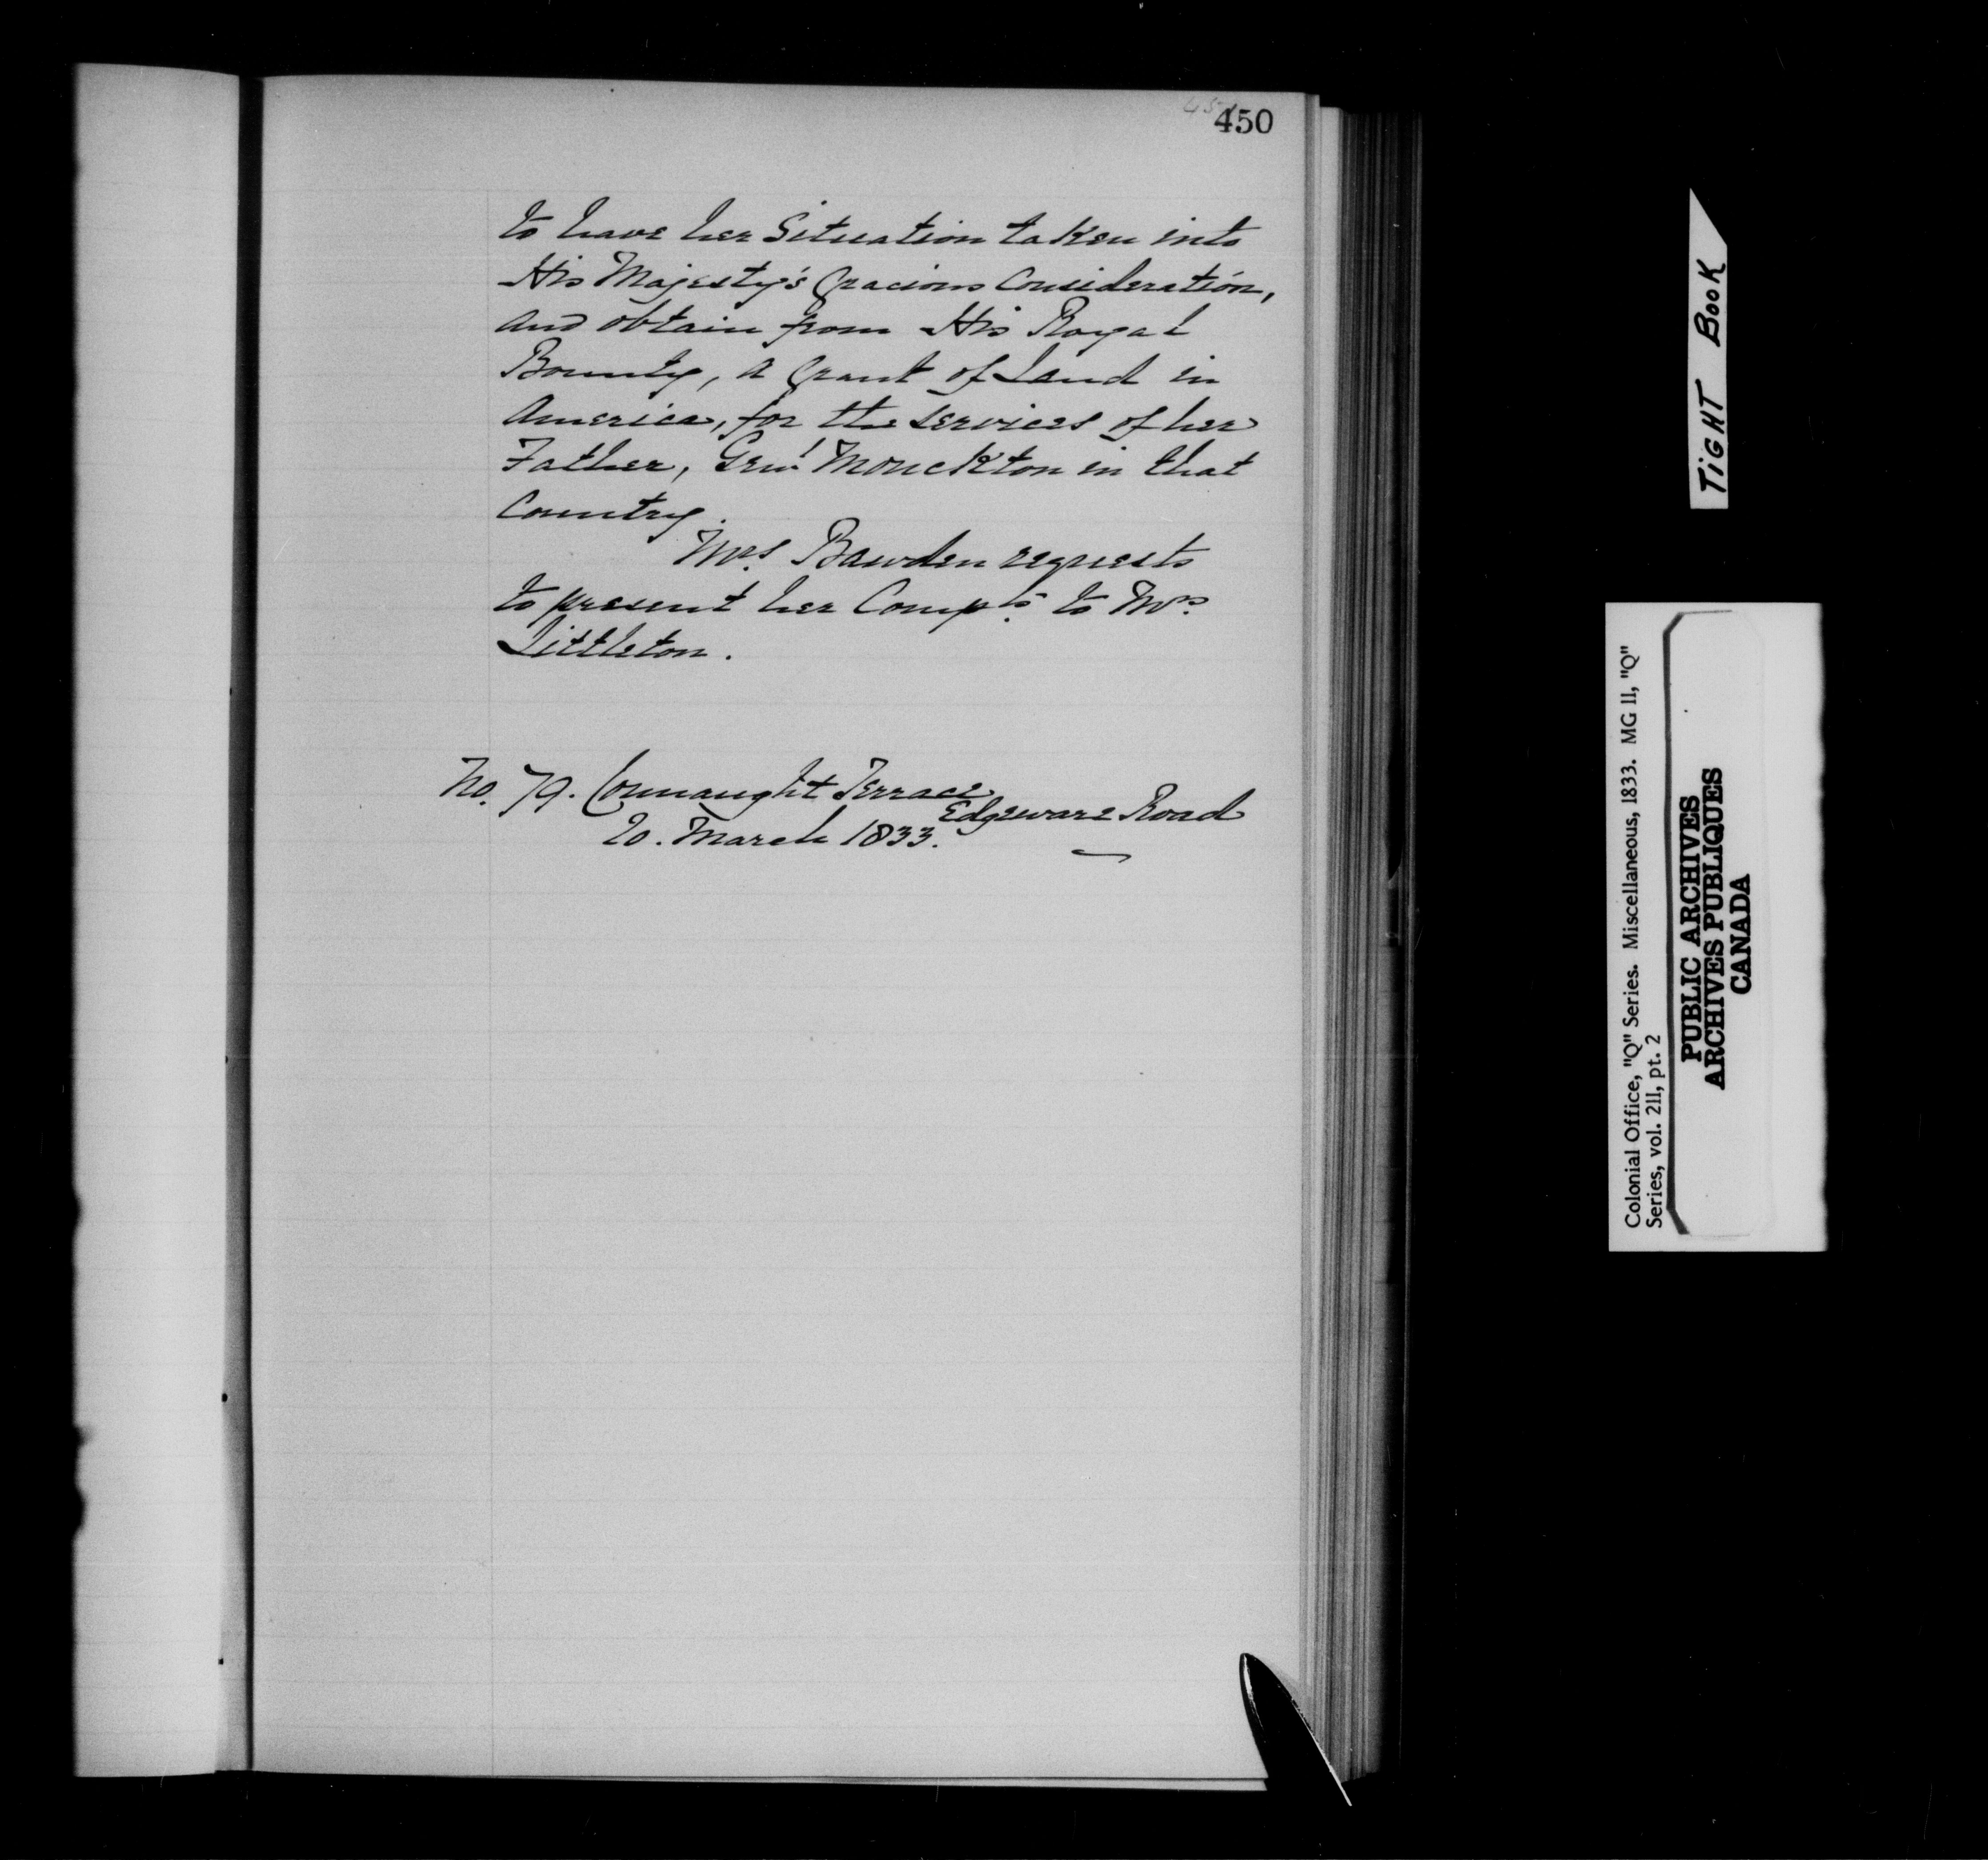 450
to have her Situation taken into
His Majesty's Gracious Consideration,
and obtain from His Royal
Bounty, a Grant of Land in
America, for the services of her
Father, Genl Monckton in that
Country.
Mrs. Bawden requests
to present her Compts. to Mrs.
Littleton.
No. 79. Connaught Terrace
Edgeware Road
20. March 1833.
TIGHT BOOK
Colonial Office, "Q" Series. Miscellaneous, 1833. MG 11, "Q"
Series, vol. 211, pt. 2
PUBLIC ARCHIVES
ARCHIVES PUBLIQUES
CANADA